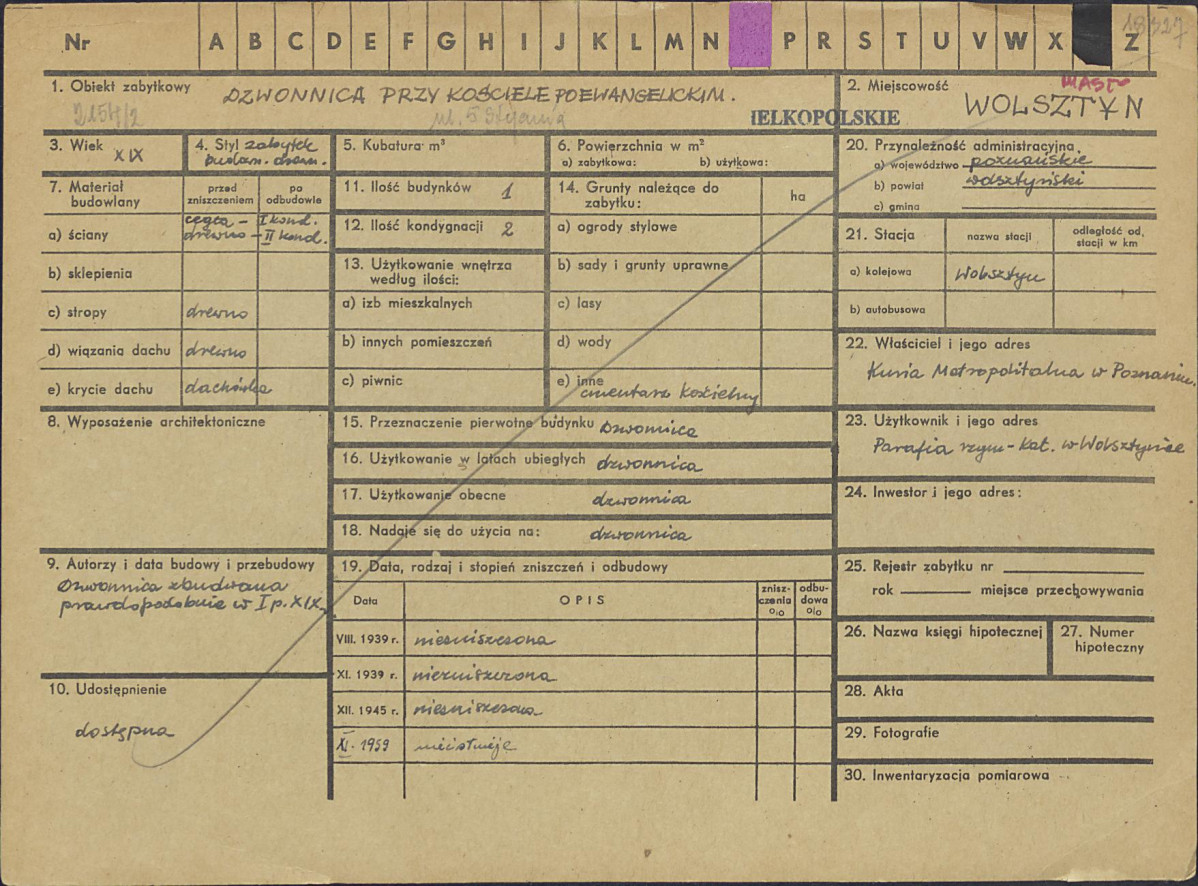 Nr A B C D E F G H I J K L M N P R S T U V W X Z
1. Obiekt zabytkowy DZWONNICA PRZY KOŚCIELE POEWANGELICKIM.
ul. 5 Stycznia
2. Miejscowość MIASTO
WOLSZTYN
IELKOPOLSKIE
3. Wiek XIX
4. Styl zabytek
budow. drewn.
5. Kubatura m³
6. Powierzchnia w m²
a) zabytkowa: b) użytkowa:
7. Materiał budowlany
przed zniszczeniem
po odbudowie
a) ściany cegła - I kond.
drewno - II kond.
b) sklepienia
c) stropy drewno
d) wiązania dachu drewno
e) krycie dachu dachówka
8. Wyposażenie architektoniczne
9. Autorzy i data budowy i przebudowy
Dzwonnica zbudowana
prawdopodobnie w I p. XIX
10. Udostępnienie
dostępna
11. Ilość budynków 1
12. Ilość kondygnacji 2
13. Użytkowanie wnętrza
według ilości:
a) izb mieszkalnych
b) innych pomieszczeń
c) piwnic
14. Grunty należące do
zabytku:
ha
a) ogrody stylowe
b) sady i grunty uprawne
c) lasy
d) wody
e) inne
cmentarz kościelny
15. Przeznaczenie pierwotne budynku dzwonnica
16. Użytkowanie w latach ubiegłych dzwonnica
17. Użytkowanie obecne dzwonnica
18. Nadaje się do użycia na: dzwonnica
19. Data, rodzaj i stopień zniszczeń i odbudowy
Data OPIS znisz-
czenia
o/o odbu-
dowa
o/o
VIII. 1939 r. niezniszczona
XI. 1939 r. niezniszczona
XII. 1945 r. niezniszczona
XI. 1959 nie istnieje
20. Przynależność administracyjna
a) województwo poznańskie
b) powiat wolsztyński
c) gmina
21. Stacja
nazwa stacji
odległość od,
stacji w km
a) kolejowa Wolsztyn
b) autobusowa
22. Właściciel i jego adres
Kuria Metropolitalna w Poznaniu.
23. Użytkownik i jego adres
Parafia rzym-kat. w Wolsztynie
24. Inwestor i jego adres:
25. Rejestr zabytku nr
rok miejsce przechowywania
26. Nazwa księgi hipotecznej
27. Numer
hipoteczny
28. Akta
29. Fotografie
30. Inwentaryzacja pomiarowa